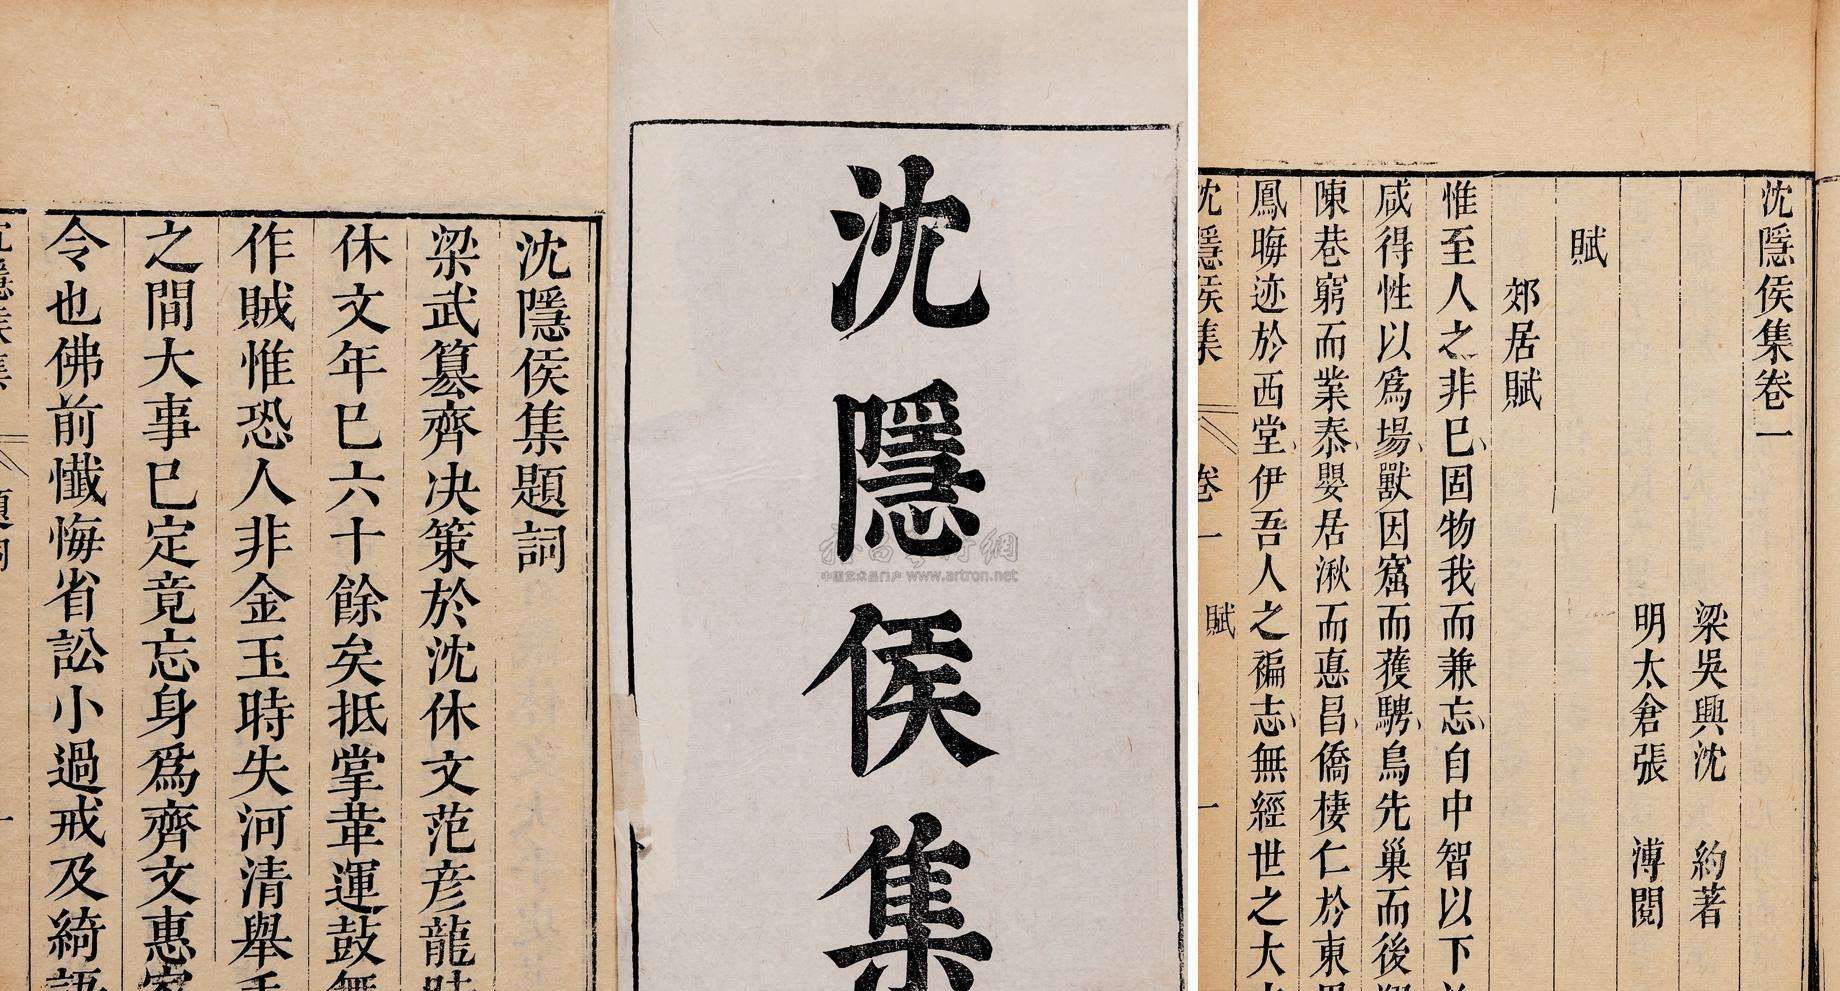 沈隱侯集題詞
梁武篡齊决策於沈休文范彦龍時
休文年巳六十餘矣抵掌革運鼓無
作賊惟恐人非金玉時失河清舉手
之間大事巳定竟忘身爲齊文惠家
令也佛前懺悔省訟小過戒及綺語
沈隱侯集
中国艺术品门户 www.artron.net
沈隱侯集卷一
梁吳興沈 約著
明太倉張 溥閱
賦
郊居賦
惟至人之非巳固物我而兼忘自中智以下
咸得性以爲場獸因窟而獲騁鳥先巢而後翔
陳巷窮而業泰嬰居湫而悳昌僑棲仁於東里
鳳晦迹於西堂伊吾人之褊志無經世之大
沈隱侯集 卷一 賦 一